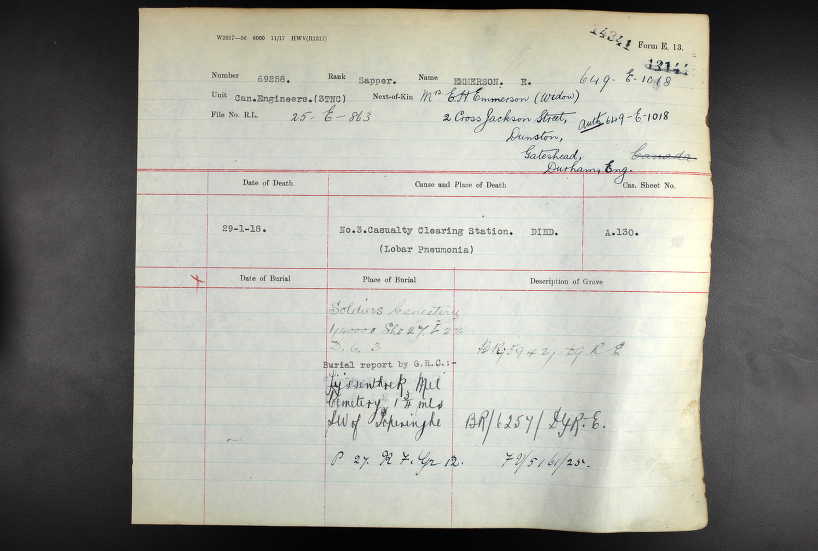 14341
W2557—56 6000 11/17 HWV(R1311)
Form E. 13.
Number 69258. Rank Sapper. Name EMMERSON. E. 649-E-1018
Unit Can.Engineers.(3TNC) Next-of-Kin Mrs E.H Emmerson (Widow)
File No. R.L. 25-E-863 2 Cross Jackson Street, Auth 649-E-1018
Dunston,
Gateshead, Canada
Durham, Eng.
Date of Death Cause and Place of Death Cas. Sheet No.
29-1-18. No.3.Casualty Clearing Station. DIED. A.130.
(Lobar Pneumonia)
Date of Burial Place of Burial Description of Grave
Soldiers Cemetery
Sht 27.
Burial report by G.R.C.:-
Lijssenthoek Mil
Cemetery 1¾ mls
SW of Poperinghe BR/6257/ DGR.E.
P 27. R 7. Gr 12.